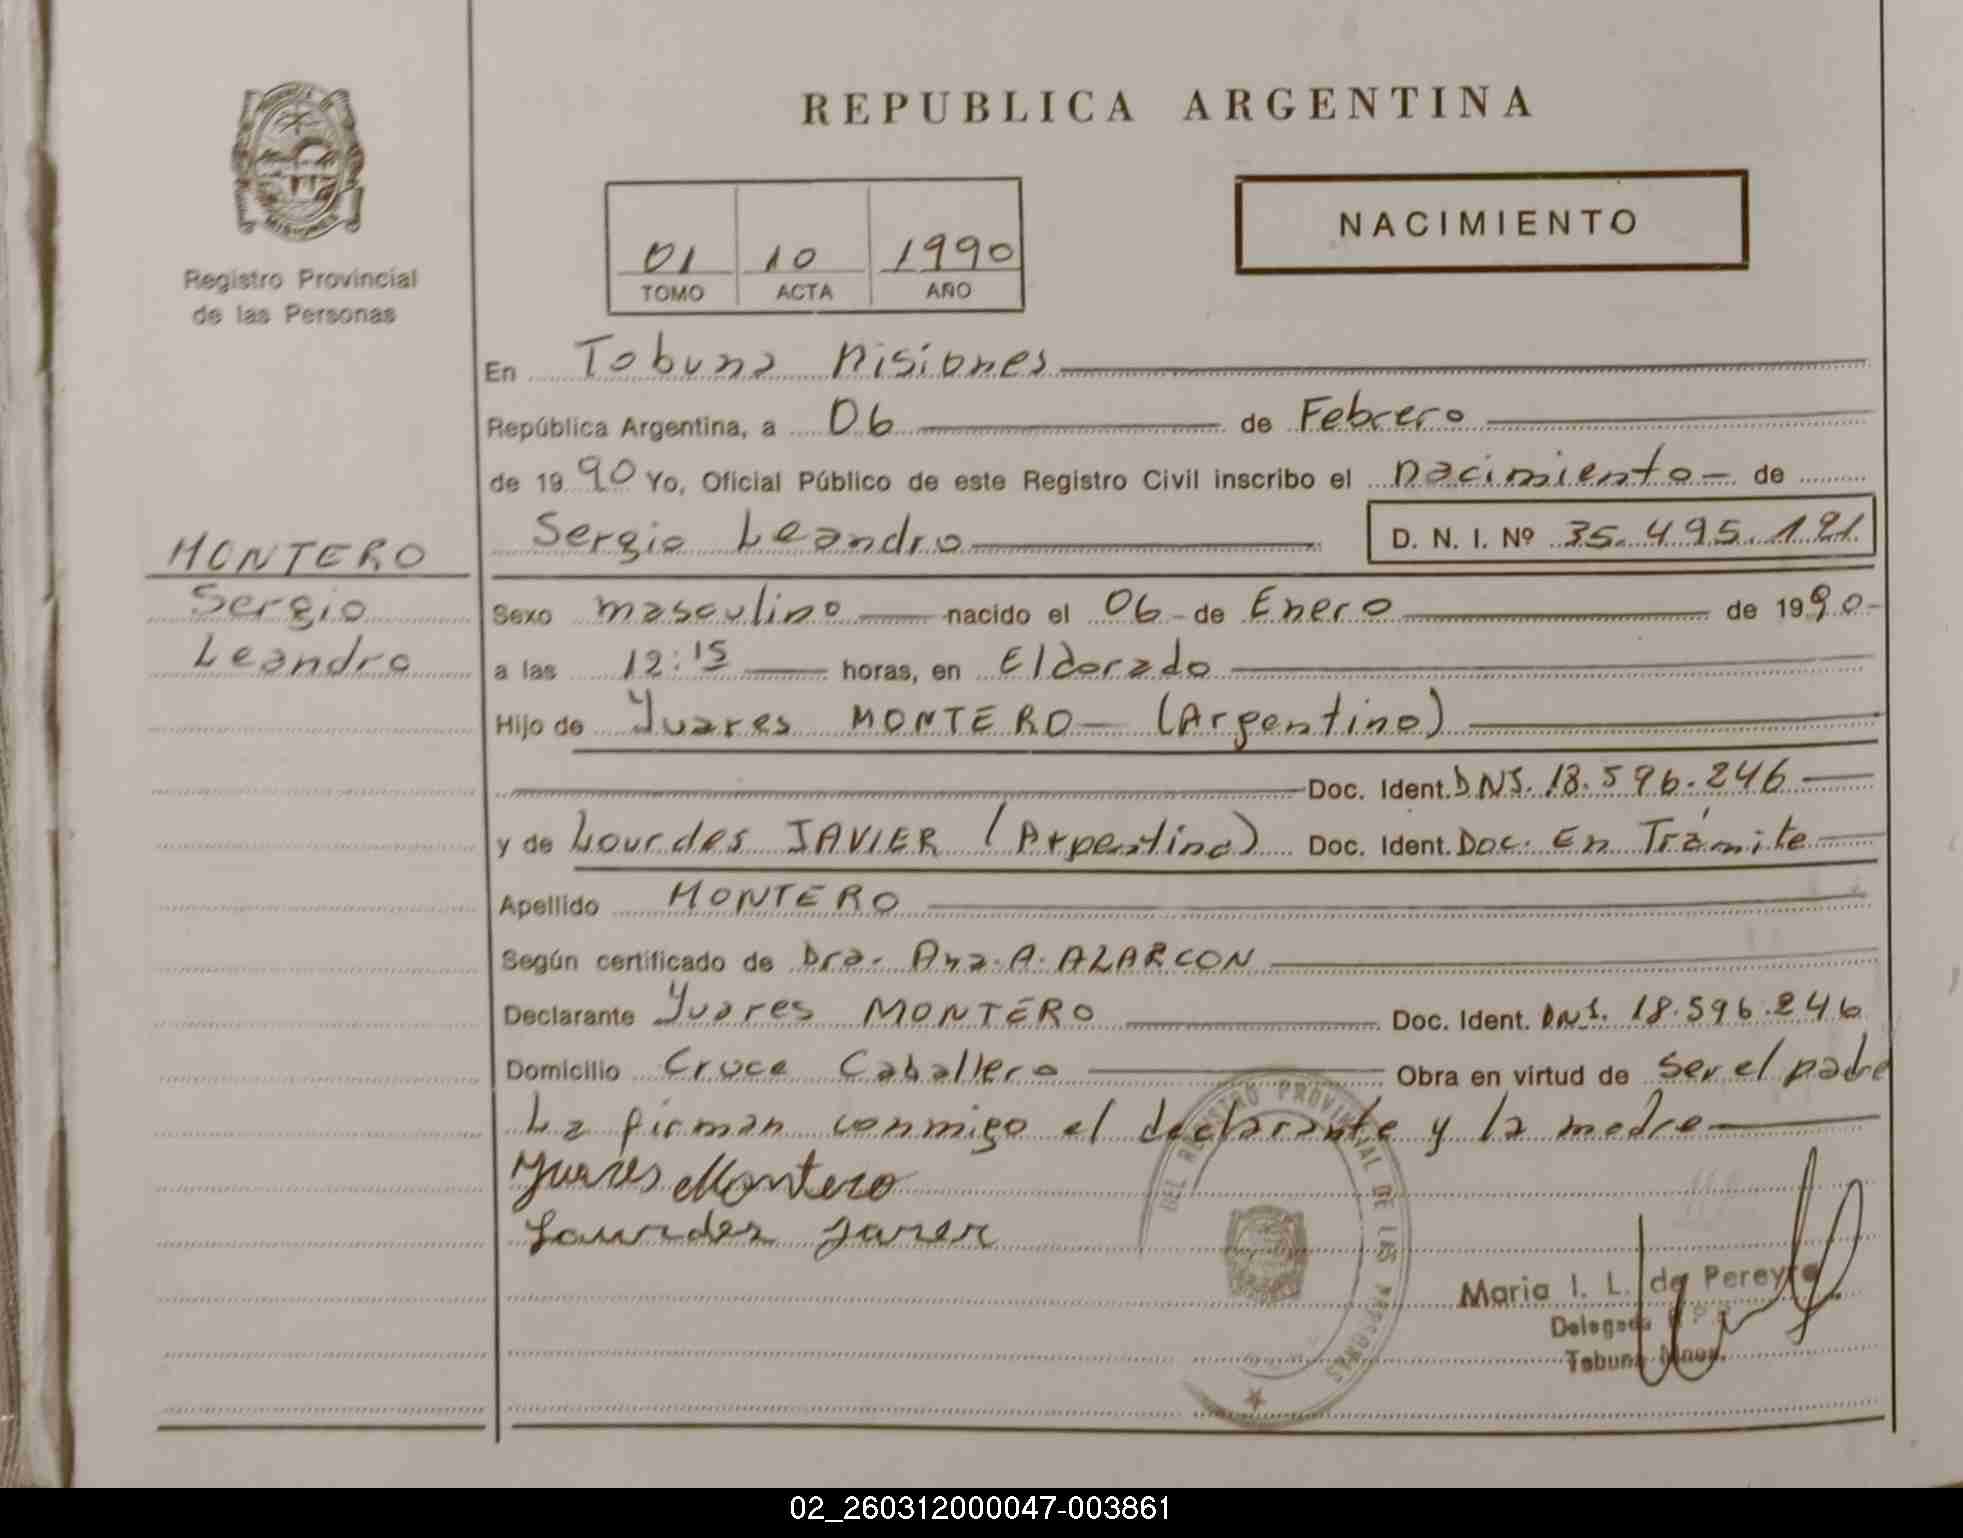 REPUBLICA ARGENTINA
NACIMIENTO
01 10 1990
TOMO ACTA AÑO
Registro Provincial
de las Personas
MONTERO
Sergio
Leandro
En Tobuna Misiones
República Argentina, a 06 de Febrero
de 1990 Yo, Oficial Público de este Registro Civil inscribo el nacimiento de
Sergio Leandro D. N. I. Nº 35.495.121
Sexo masculino nacido el 06 de Enero de 1990
a las 12:15 horas, en Eldorado
Hijo de Yuares MONTERO (Argentino)
Doc. Ident. DNI. 18.596.246
y de Lourdes JAVIER (Argentina) Doc. Ident. Doc. En Trámite
Apellido MONTERO
Según certificado de Dra. Ana A. ALARCON
Declarante Yuares MONTERO Doc. Ident. DNI. 18.596.246
Domicilio Cruce Caballero Obra en virtud de ser el padre
La firman conmigo el declarante y la madre
Yuares Montero
Lourdes Javier
DEL REGISTRO PROVINCIAL DE LAS PERSONAS
Maria I. L. de Pereyra
Delegada
Tobuna Mnes.
02_260312000047-003861